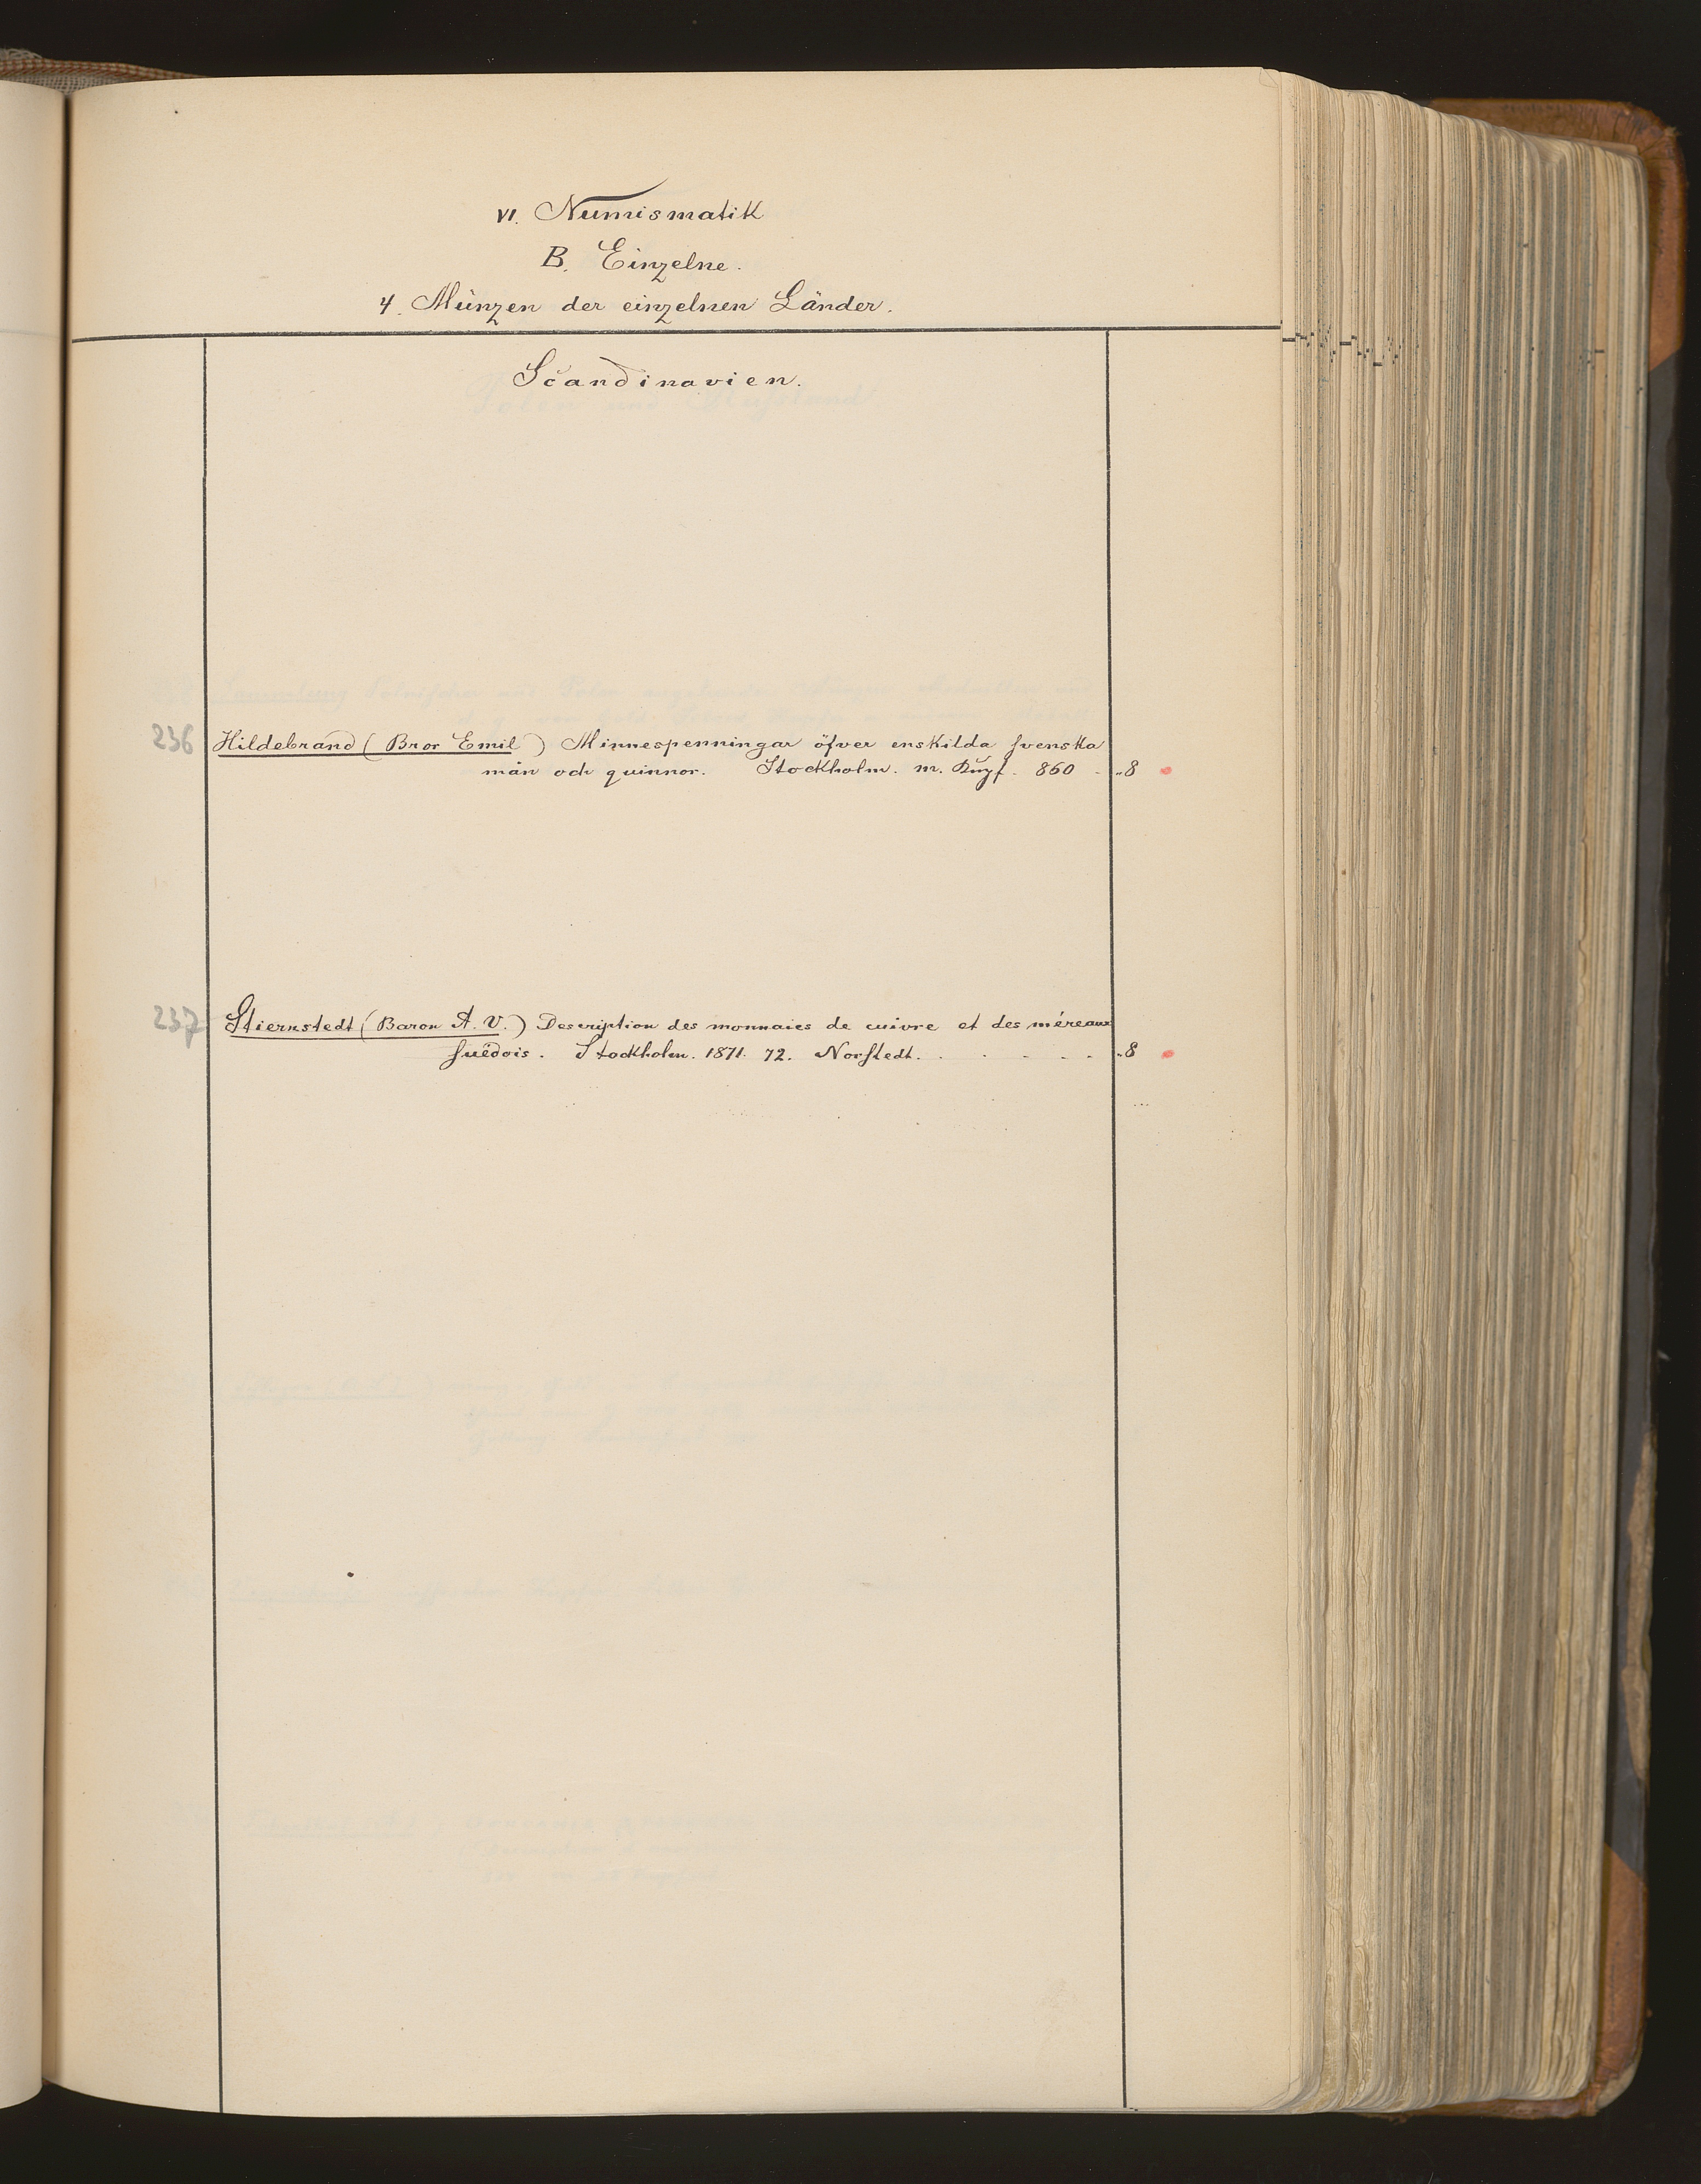 VI. Numismatik
B. Einzelne.
4. Münzen der einzelnen Länder.
Scandinavien.
236 Hildebrand (Bror Emil) Minnespenningar öfver enskilda svenska
män och quinnor. Stockholm. m. Kupf. 860 - „8
237 Stiernstedt (Baron A. V.) Description des monnaies de cuivre et des méreaux
suëdois. Stockholm. 1871. 72. Norstedt. . . . . . „8